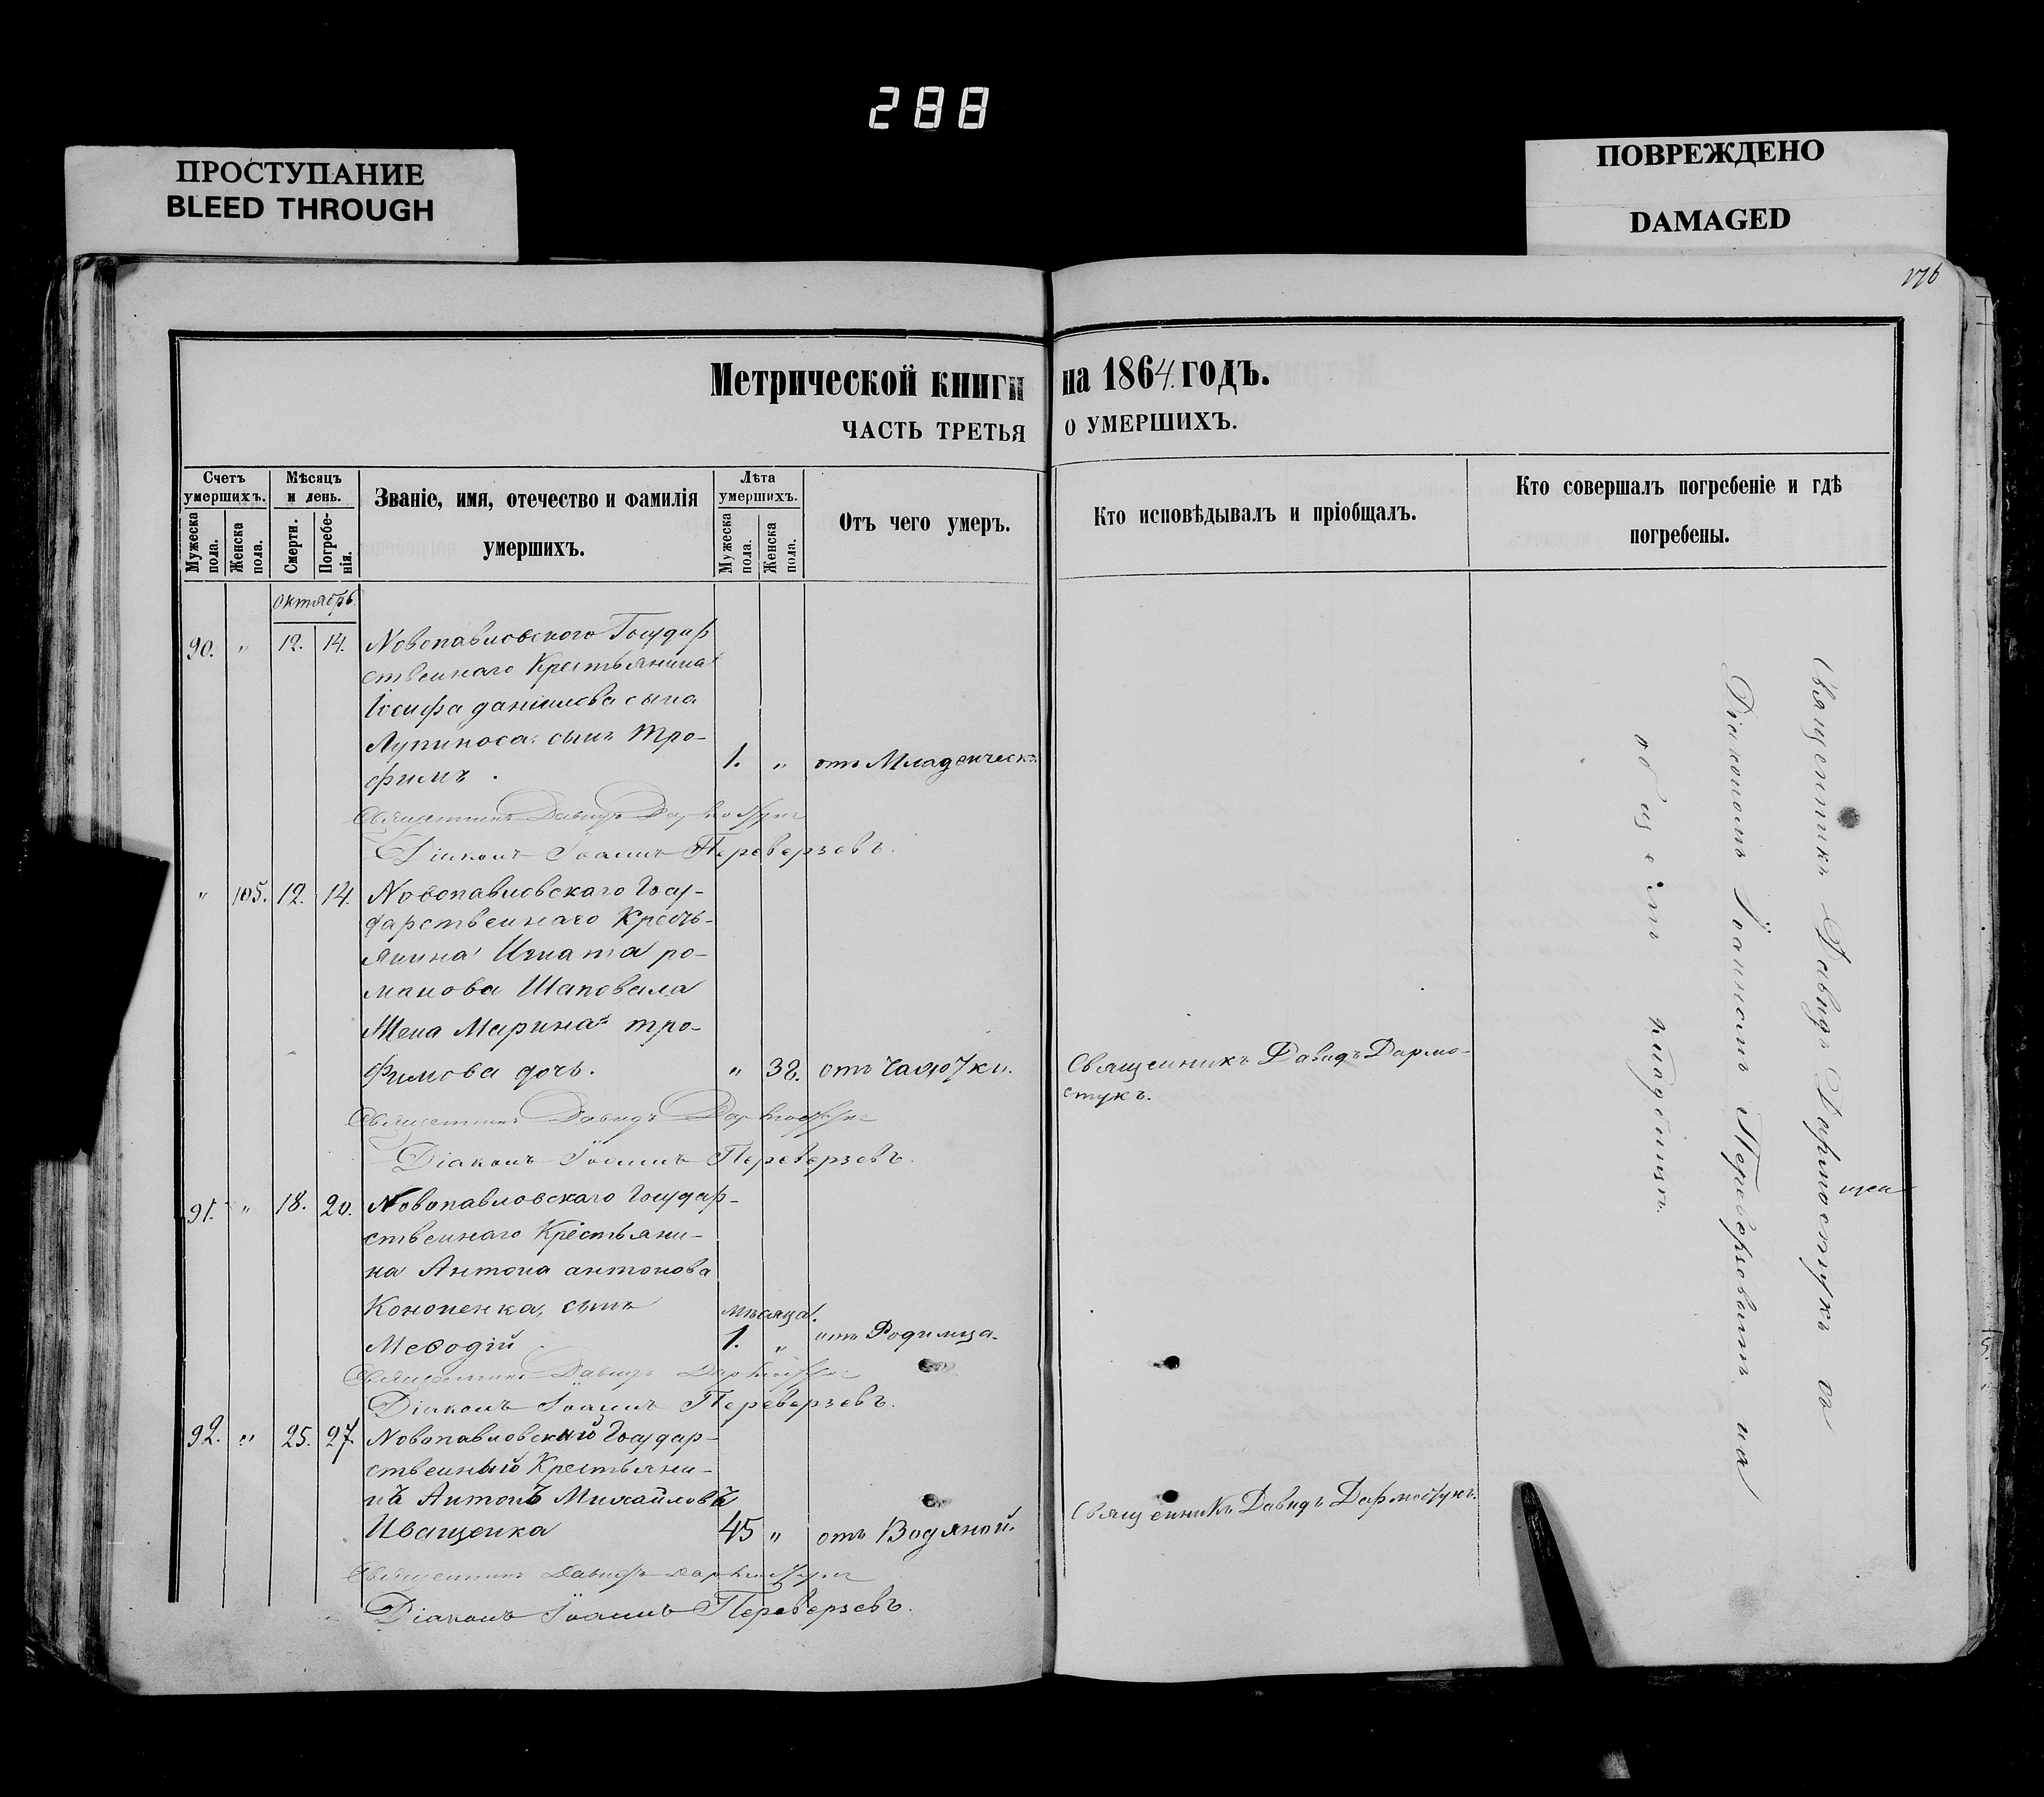 288
ПРОСТУПАНИЕ
BLEED THROUGH
ПОВРЕЖДЕНО
DAMAGED
176
Метрической книги на 1864. годъ.
ЧАСТЬ ТРЕТЬЯ О УМЕРШИХЪ.
Счетъ умершихъ.
Мужеска пола.
Женска пола.
Мѣсяцъ и день.
Смерти.
Погребенія.
Званіе, имя, отечество и фамилія умершихъ.
Лѣта умершихъ.
Мужеска пола.
Женска пола.
Отъ чего умеръ.
Кто исповѣдывалъ и пріобщалъ.
Кто совершалъ погребеніе и гдѣ погребены.
октябрь
90. " 12. 14. Новопавловского Государ
ственнаго Крестьянина
Іосифа данилова сына
Лупиноса, сынъ Тро-
фимъ. 1. " отъ Младенческ:
Священникъ Давидъ Дармостукъ
Діаконъ Іоаннъ Переверзевъ.
" 105. 12. 14. Новопавловскаго Госу-
дарственнаго Кресть-
янина Игната ро-
манова Шаповала
Жена Марина тро-
фимова дочь. " 38. отъ Чахотки. Священникъ Давидъ Дармо-
стукъ.
Священникъ Давидъ Дармостукъ
Діаконъ Іоаннъ Переверзевъ.
91. " 18. 20. Новопавловскаго Государ-
ственнаго Крестьяни-
на Антона антонова
Кононенка, сынъ мѣсяца.
Меѳодій 1. " отъ Родимца.
Священникъ Давидъ Дармостукъ
Діаконъ Іоаннъ Переверзевъ.
92. " 25. 27 Новопавловский Государ-
ственный Крестьяни-
нъ Антонъ Михайловъ
Иващенка 45 " отъ Водяной. Священникъ Давидъ Дармостукъ.
Священникъ Давидъ Дармостукъ
Діаконъ Іоаннъ Переверзевъ.
Священникъ Давидъ Дармостукъ со
Діакономъ Іоанномъ Переверзевымъ на
общемъ кладбищѣ.